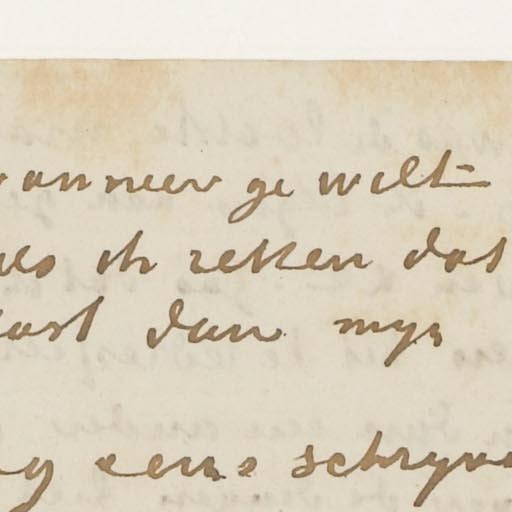 wanneer ge wilt
als ik reken dat
dan myn
eens schryve